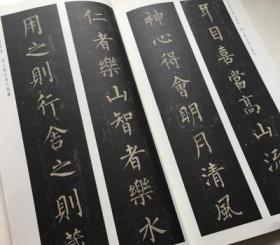 耳目喜當高山流
神心得會明月清風
仁者樂山智者樂水
用之則行舍之則藏